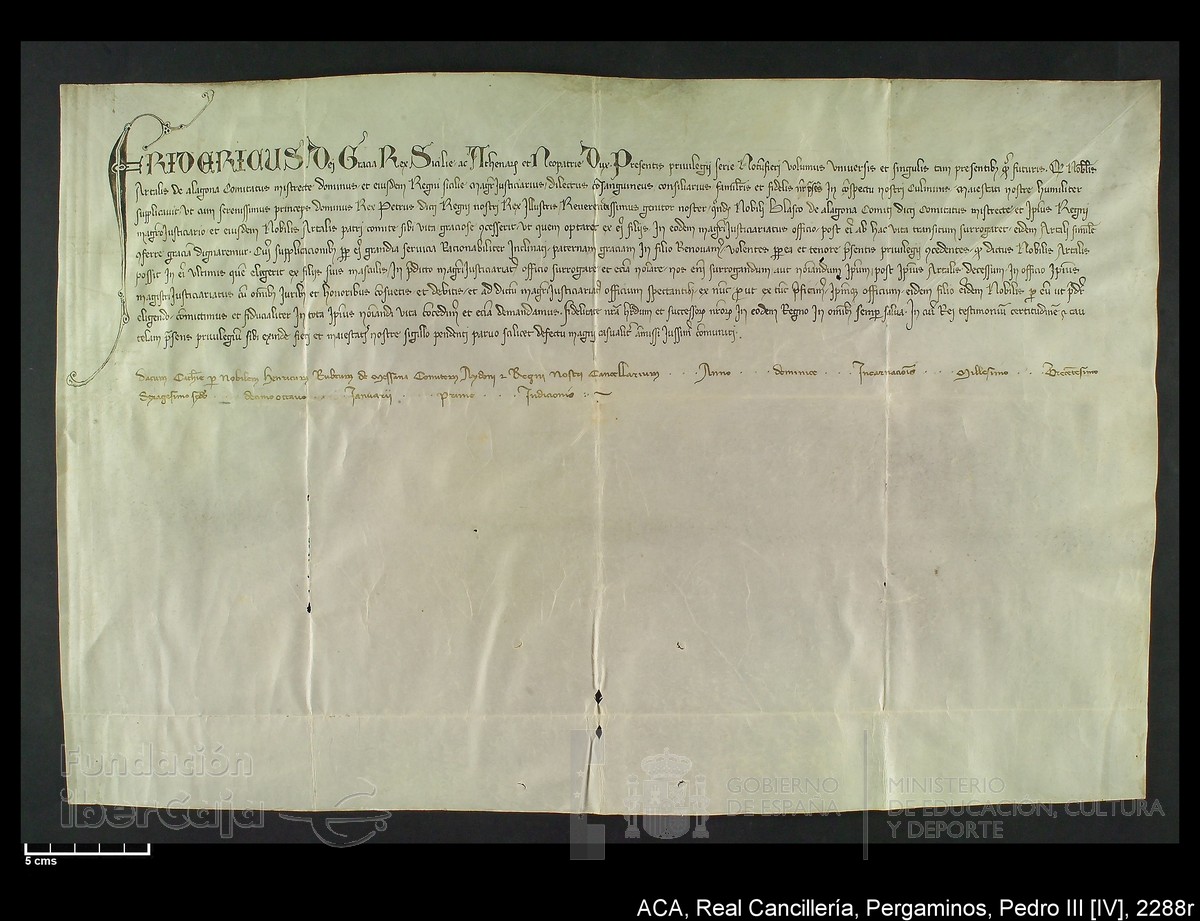 FRIDERICUS Dei Gracia Rex Sicilie ac Athenarum et Neopatrie Dux Presentis privilegii serie Notumfieri volumus universis et singulis tam presentibus quam futuris. Nobilis
Artalis de alagona Comitatus mistrecte dominus et eiusdem Regni sicilie magister Justiciarius dilectus consanguineus consiliarius familiaris et fidelis noster in conspectu nostri Culminis Maiestati nostre humiliter
supplicavit ut cum serenissimus princeps dominus Rex Petrus dicti Regni nostri Rex Illustris Reverentissimus genitor noster quondam Nobili Blasco de alagona Comiti dicti Comitatus mistrecte et ipsius Regni
magistro Justiciario et eiusdem Nobilis Artalis patri comite sibi vita graciose concesserit ut quem optaret ex eius filiis in eodem magistri Justiciariatus officio post eius ab hac vita transitum surrogaret eidem Artali
conferre graciam dignaremur. Cuius supplicacionibus grandia servicia Racionabiliter Inclinati paternam graciam in filio Renovamus volentes et tenore presentis privilegii concedentes quod dictus Nobilis Artalis
possit in eius Ultimis quem elegerit ex filiis suis masculis in predicto magistri Justiciariatus officio surrogare et eciam nos surrogandum aut ipsum post ipsius Artalis decessum in officio ipsius
magistri Justiciariatus cum omnibus Juribus et honoribus consuetis et debitis et ad dictum magistri Justiciariatus officium spectantibus ex nunc prout ex tunc ipsumque officium eidem filio eiusdem Nobilis
eligendo committimus et fiducialiter in tota ipsius vita concedimus et eciam demandamus. fidelitate nostra heredum et successorum nostrorum in eodem Regno in omnibus semper salva. In cuius Rei testimonium certitudinem et cau
telam presens privilegium sibi exinde fieri et maiestatis nostre sigillo pendenti parvo scilicet defectu magni casualiter amissi Jussimus communiri.
Datum Cathanie per Nobilem Henricum Rubeum de Messana Comitem Aydoni et Regni Nostri Cancellarium Anno dominice Incarnacionis Millesimo Trecentesimo
Sexagesimo decimo octavo Januarii Prime Indicionis
Fundación
iberCaja
GOBIERNO
DE ESPAÑA
MINISTERIO
DE EDUCACIÓN, CULTURA
Y DEPORTE
5 cms
ACA, Real Cancillería, Pergaminos, Pedro III [IV], 2288r